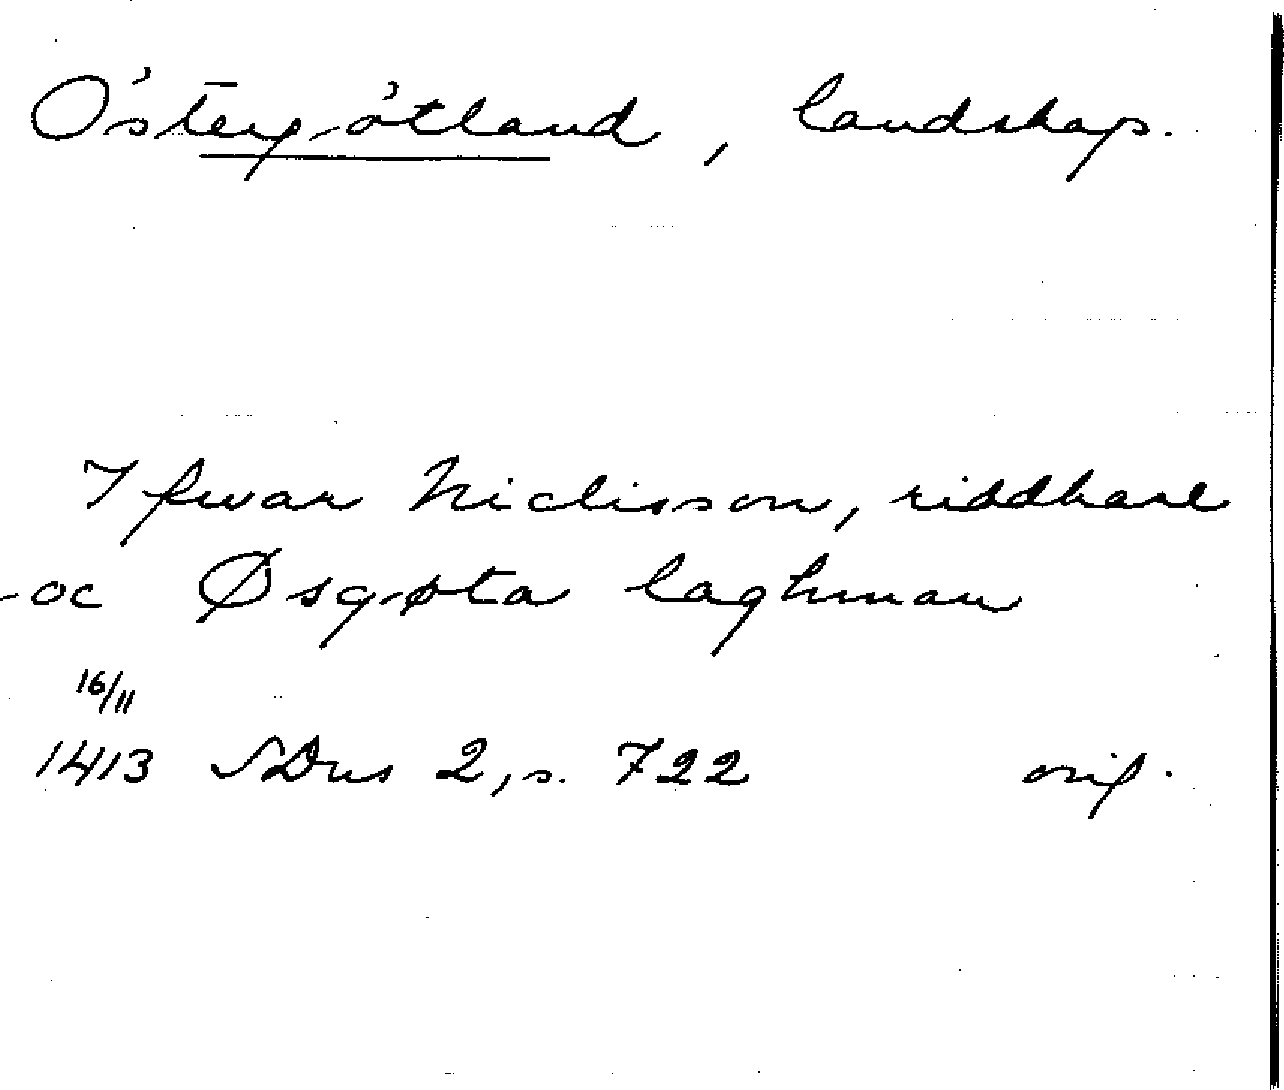 Östergötland, landskap.
Ifwar Niclisson, riddhare
oc Øsgøta laghman
16/11
1413 SDns 2, s. 722 orig.